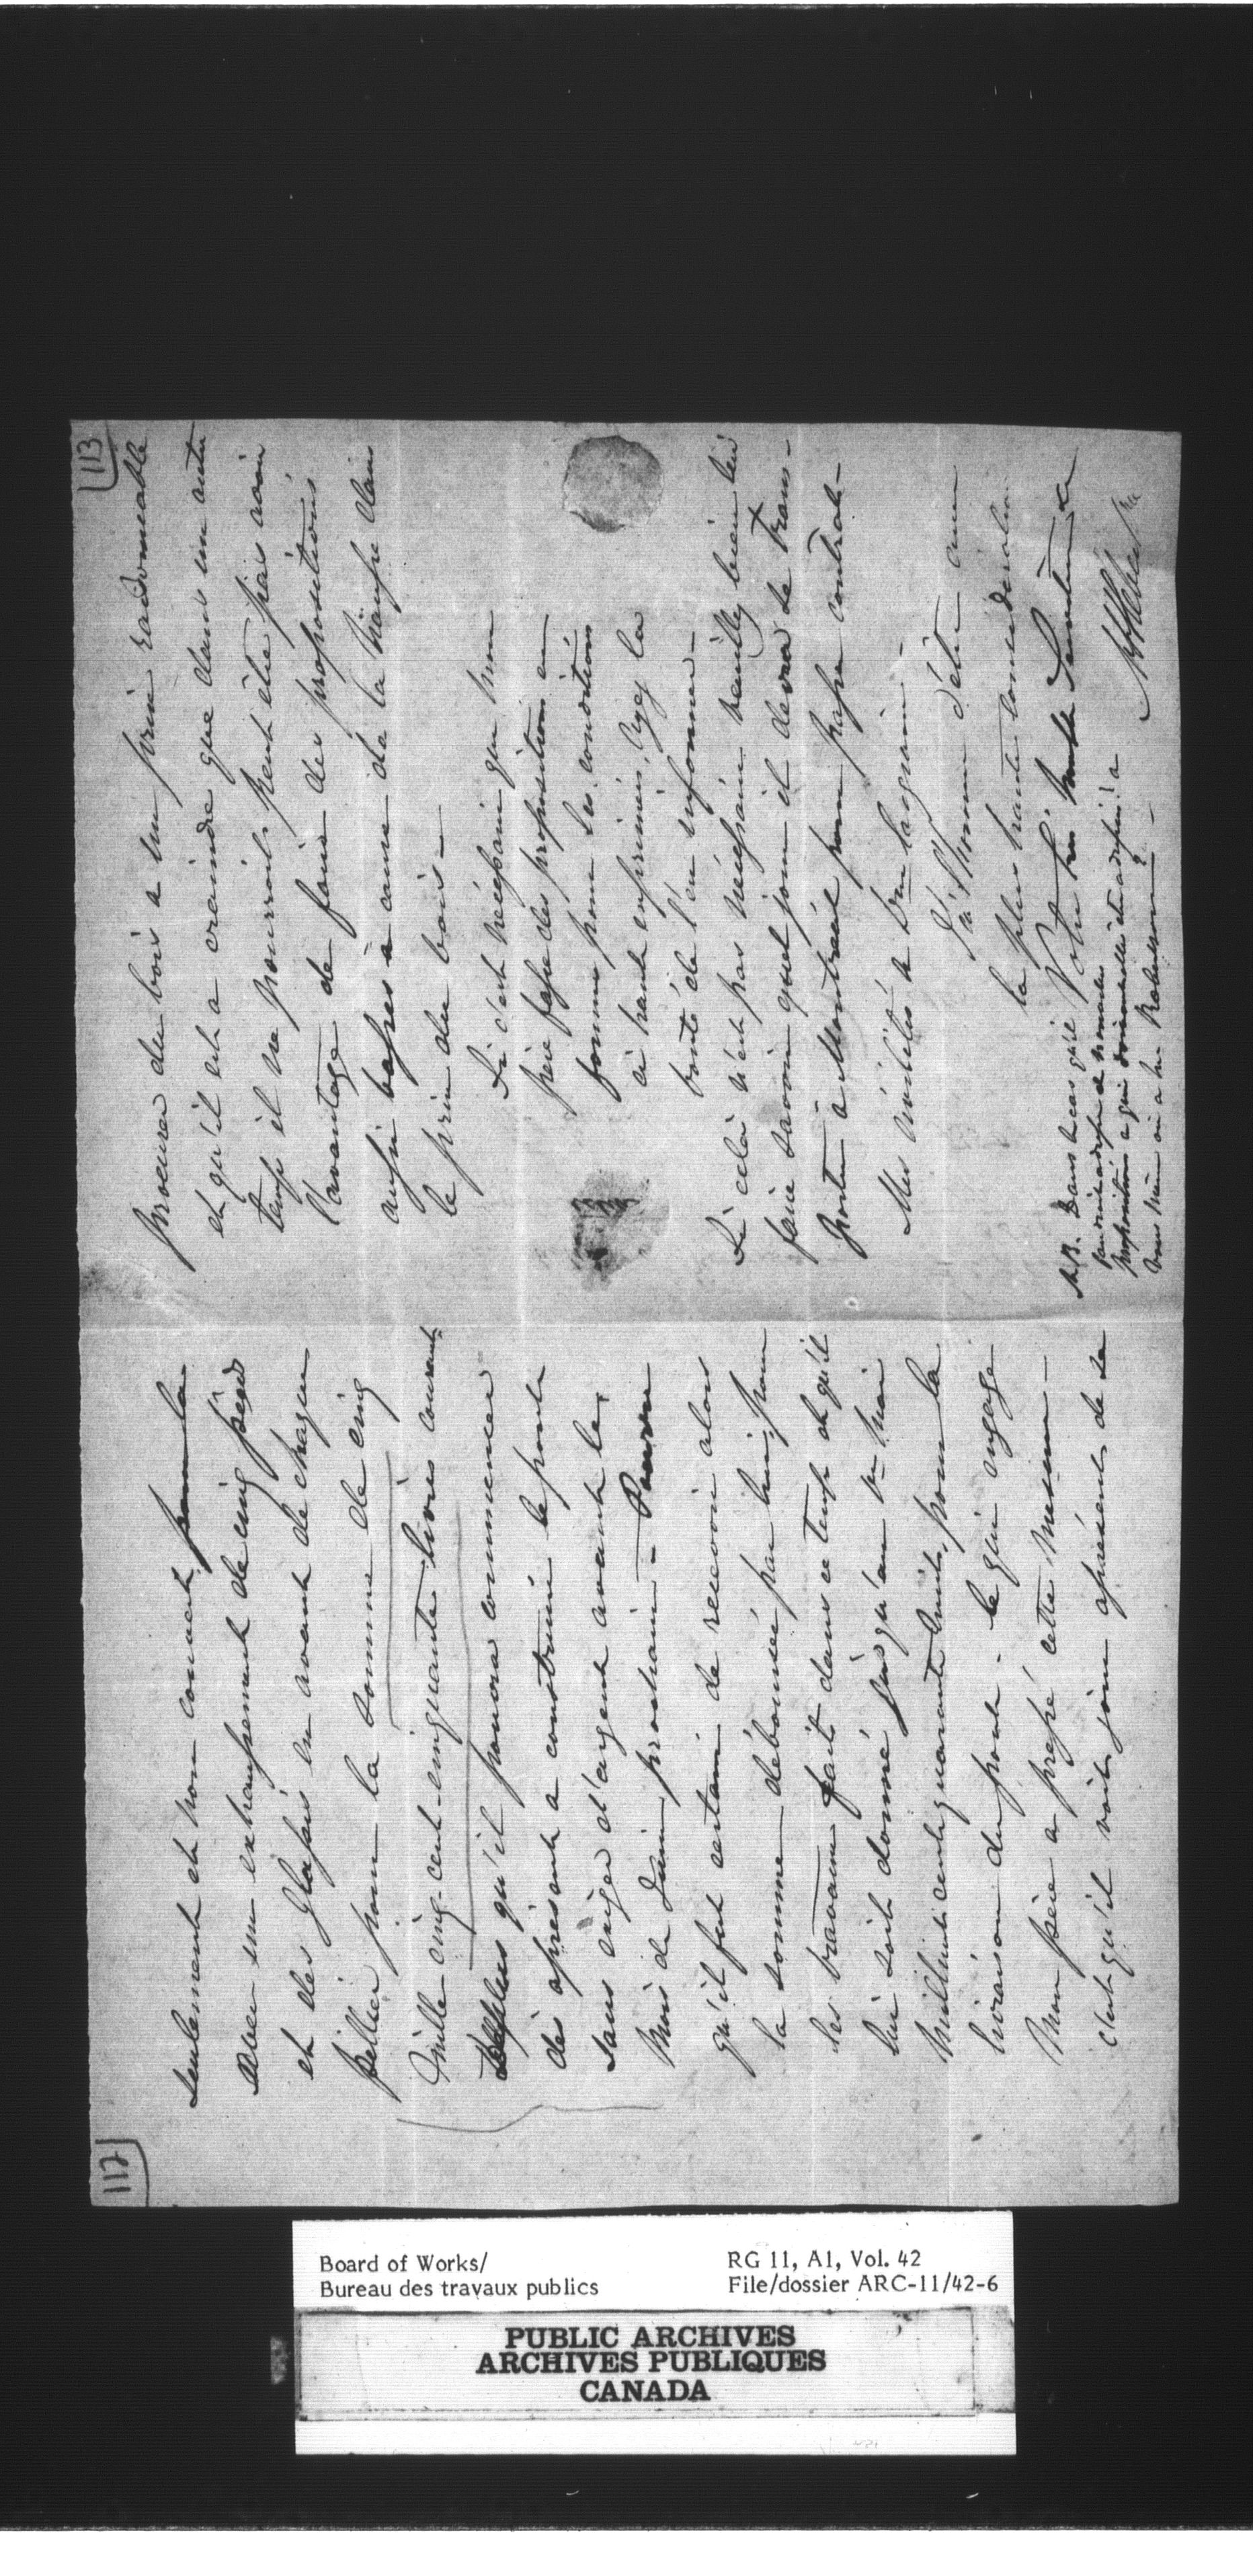 112
seulement et non couvert, pour la
avec un exhaussement de cinq pieds
et des glassis en avant de chaques
pillier pour la somme de cinq
mille cinq-cent-cinquante livres courant.
De plus qu'il pourra commencer
dès apresent a construire le ponte
sans exiger d'argent avant le
mois de Juin prochain - Pourvu
qu'il fut certain de recevoir alors
la somme déboursée par lui, pour
les travaux fait dans ce temps et qu'il
lui soit donné jusqu'au 1er Mai
mil huit cents quarante huit, pour la
livraison du ponte - Ce qui engage
Mon père a pressé cette mesure -
c'est qu'il voit jour apresent de se
113
procurer du bois a un prix raisonnable
et qu'il est a craindre que dans un autre
temps il ne pourroit peut être pas avoir
l'avantage de faire des propositions
aussi basses a cause de la hausse dans
le prix du bois -
Si c'est nécessaire que mon
père fasse des propositions en
forme pour les conditions
ci haut exprimés, ayez la
bonté de l'en informer -
Si celà n'est pas nécessaire veuillez bien lui
faire savoir quel jour il devra se trans-
porter à Montreal pour passer contrat -
Mes civilités a Dme Gagnon -
J'ai l'honneur d'être avec
la plus haute considération
Votre très humble Serviteur
N.B. Dans le cas qu'il
faudrait adresser de nouvelles
propositions a qui doivent elles être adressées a
vous même ou a Mr Robertson? -
Board of Works/
Bureau des travaux publics
RG 11, A1, Vol. 42
File/dossier ARC-11/42-6
PUBLIC ARCHIVES
ARCHIVES PUBLIQUES
CANADA